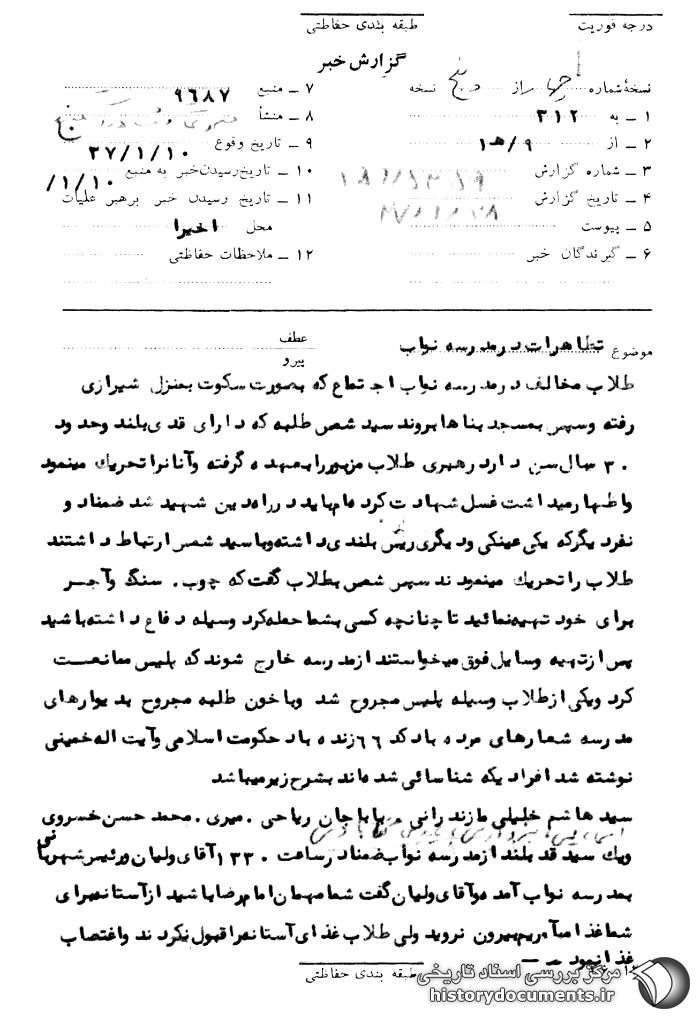 درجه فوریت
طبقه بندی حفاظتی
گزارش خبر
نسخهٔ شماره از نسخه
۱ ــ به ۳۱۲
۲ ــ از ۹/هـ۱
۳ ــ شماره گزارش
۴ ــ تاریخ گزارش
۵ ــ پیوست
۶ ــ گیرندگان خبر
۷ ــ منبع ۹۶۸۷
۸ ــ منشأ
۹ ــ تاریخ وقوع ۳۷/۱/۱۰
۱۰ ــ تاریخ رسیدن خبر به منبع ۱/۱۰/
۱۱ ــ تاریخ رسیدن خبر برهبر عملیات
محل اخیرا
۱۲ ــ ملاحظات حفاظتی
موضوع تظاهرات در مدرسه نواب
عطف
پیرو
طلاب مخالف در مدرسه نواب اجتماع که بصورت سکوت بمنزل شیرازی
رفته وسپس بمسجد بناها بروند سید شمس طلبه که دارای قدی بلند وحدود
۳۰ سال سن دارد رهبری طلاب مزبور را بعهده گرفته وآنانرا تحریك مینمود
واظهار میداشت غسل شهادت کرده ام باید در راه دین شهید شد ضمنا دو
نفر دیگر که یکی عینکی ودیگری ریش بلندی داشته وبا سید شمس ارتباط داشتند
طلاب را تحریك مینمودند سپس شمس بطلاب گفت که چوب . سنگ وآجر
برای خود تهیه نمائید تا چنانچه کسی بشما حمله کرد وسیله دفاع داشته باشید
پس از تهیه وسایل فوق میخواستند از مدرسه خارج شوند که پلیس ممانعت
کرد ویکی از طلاب وسیله پلیس مجروح شد وبا خون طلبه مجروح بدیوارهای
مدرسه شعارهای مرده باد کد ۶۶ زنده باد حکومت اسلامی وآیت اله خمینی
نوشته شد افرادیکه شناسائی شده اند بشرح زیر میباشد
سید هاشم خلیلی مازندرانی . باباجان ریاحی . میری . محمد حسن خسروی
ویك سید قد بلند از مدرسه نواب ضمنا در ساعت ۱۳۳۰ آقای ولیان ورئیس شهربانی
بمدرسه نواب آمده وآقای ولیان گفت شما مهمان امام رضا باشید از آستانه برای
شما غذا میآوریم بیرون نروید ولی طلاب غذای آستانه را قبول نکردند واعتصاب
غذا نمودند ــ
طبقه بندی حفاظتی
مرکز بررسی اسناد تاریخی
historydocuments.ir